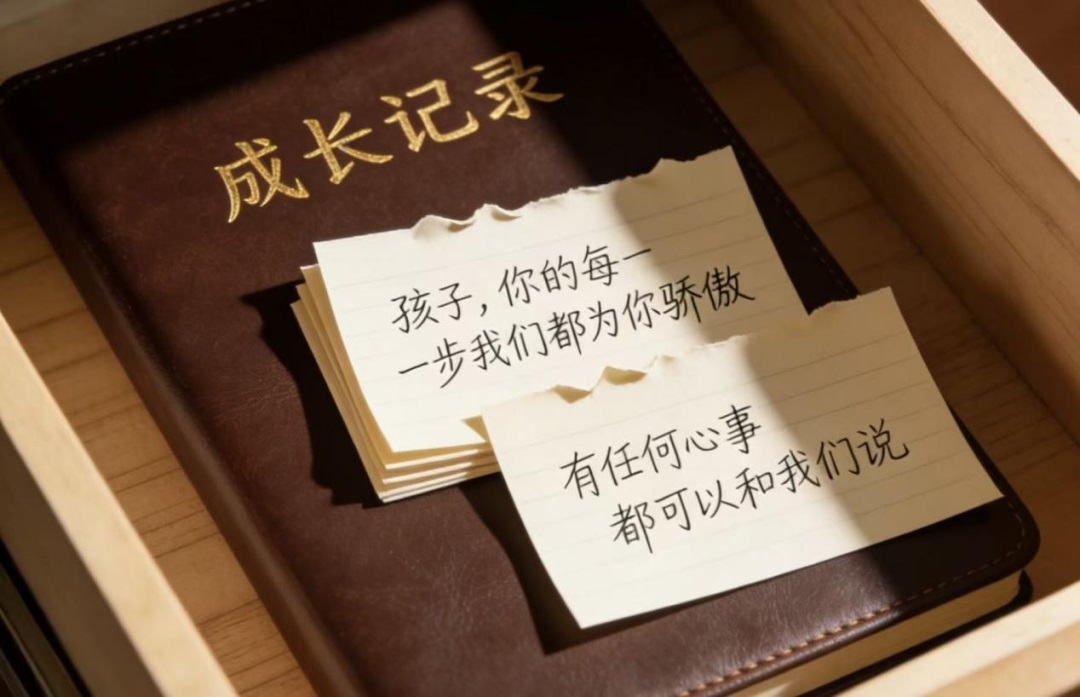 成长记录
孩子,你的每一
一步我们都为你骄傲
有任何心事
都可以和我们说